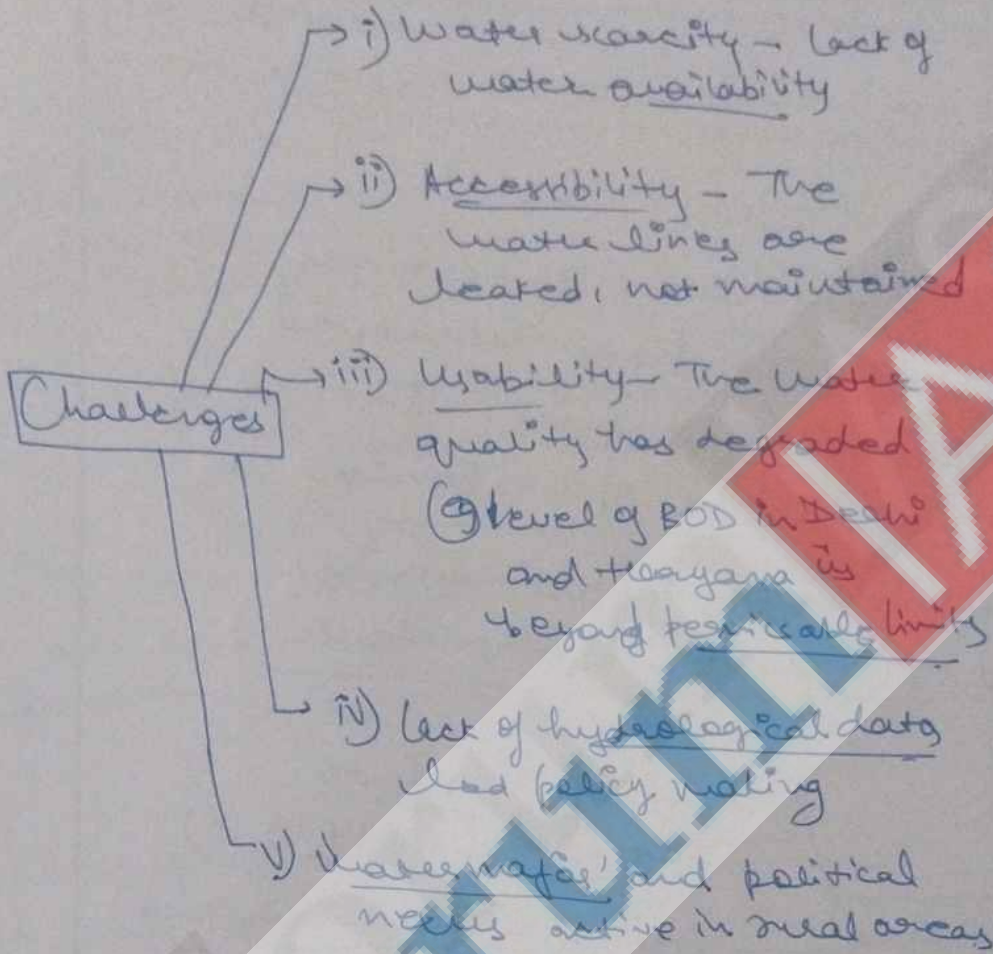 i) Water scarcity - lack of
water availability
ii) Accessibility - The
water lines are
leaked, not maintained
Challenges
iii) Usability - The water
quality has degraded
eg level of BOD in Delhi
and Haryana is
beyond permissible limits
iv) lack of hydrological data
led policy making
v) 'Water mafias' and political
nexus active in rural areas
rum IA